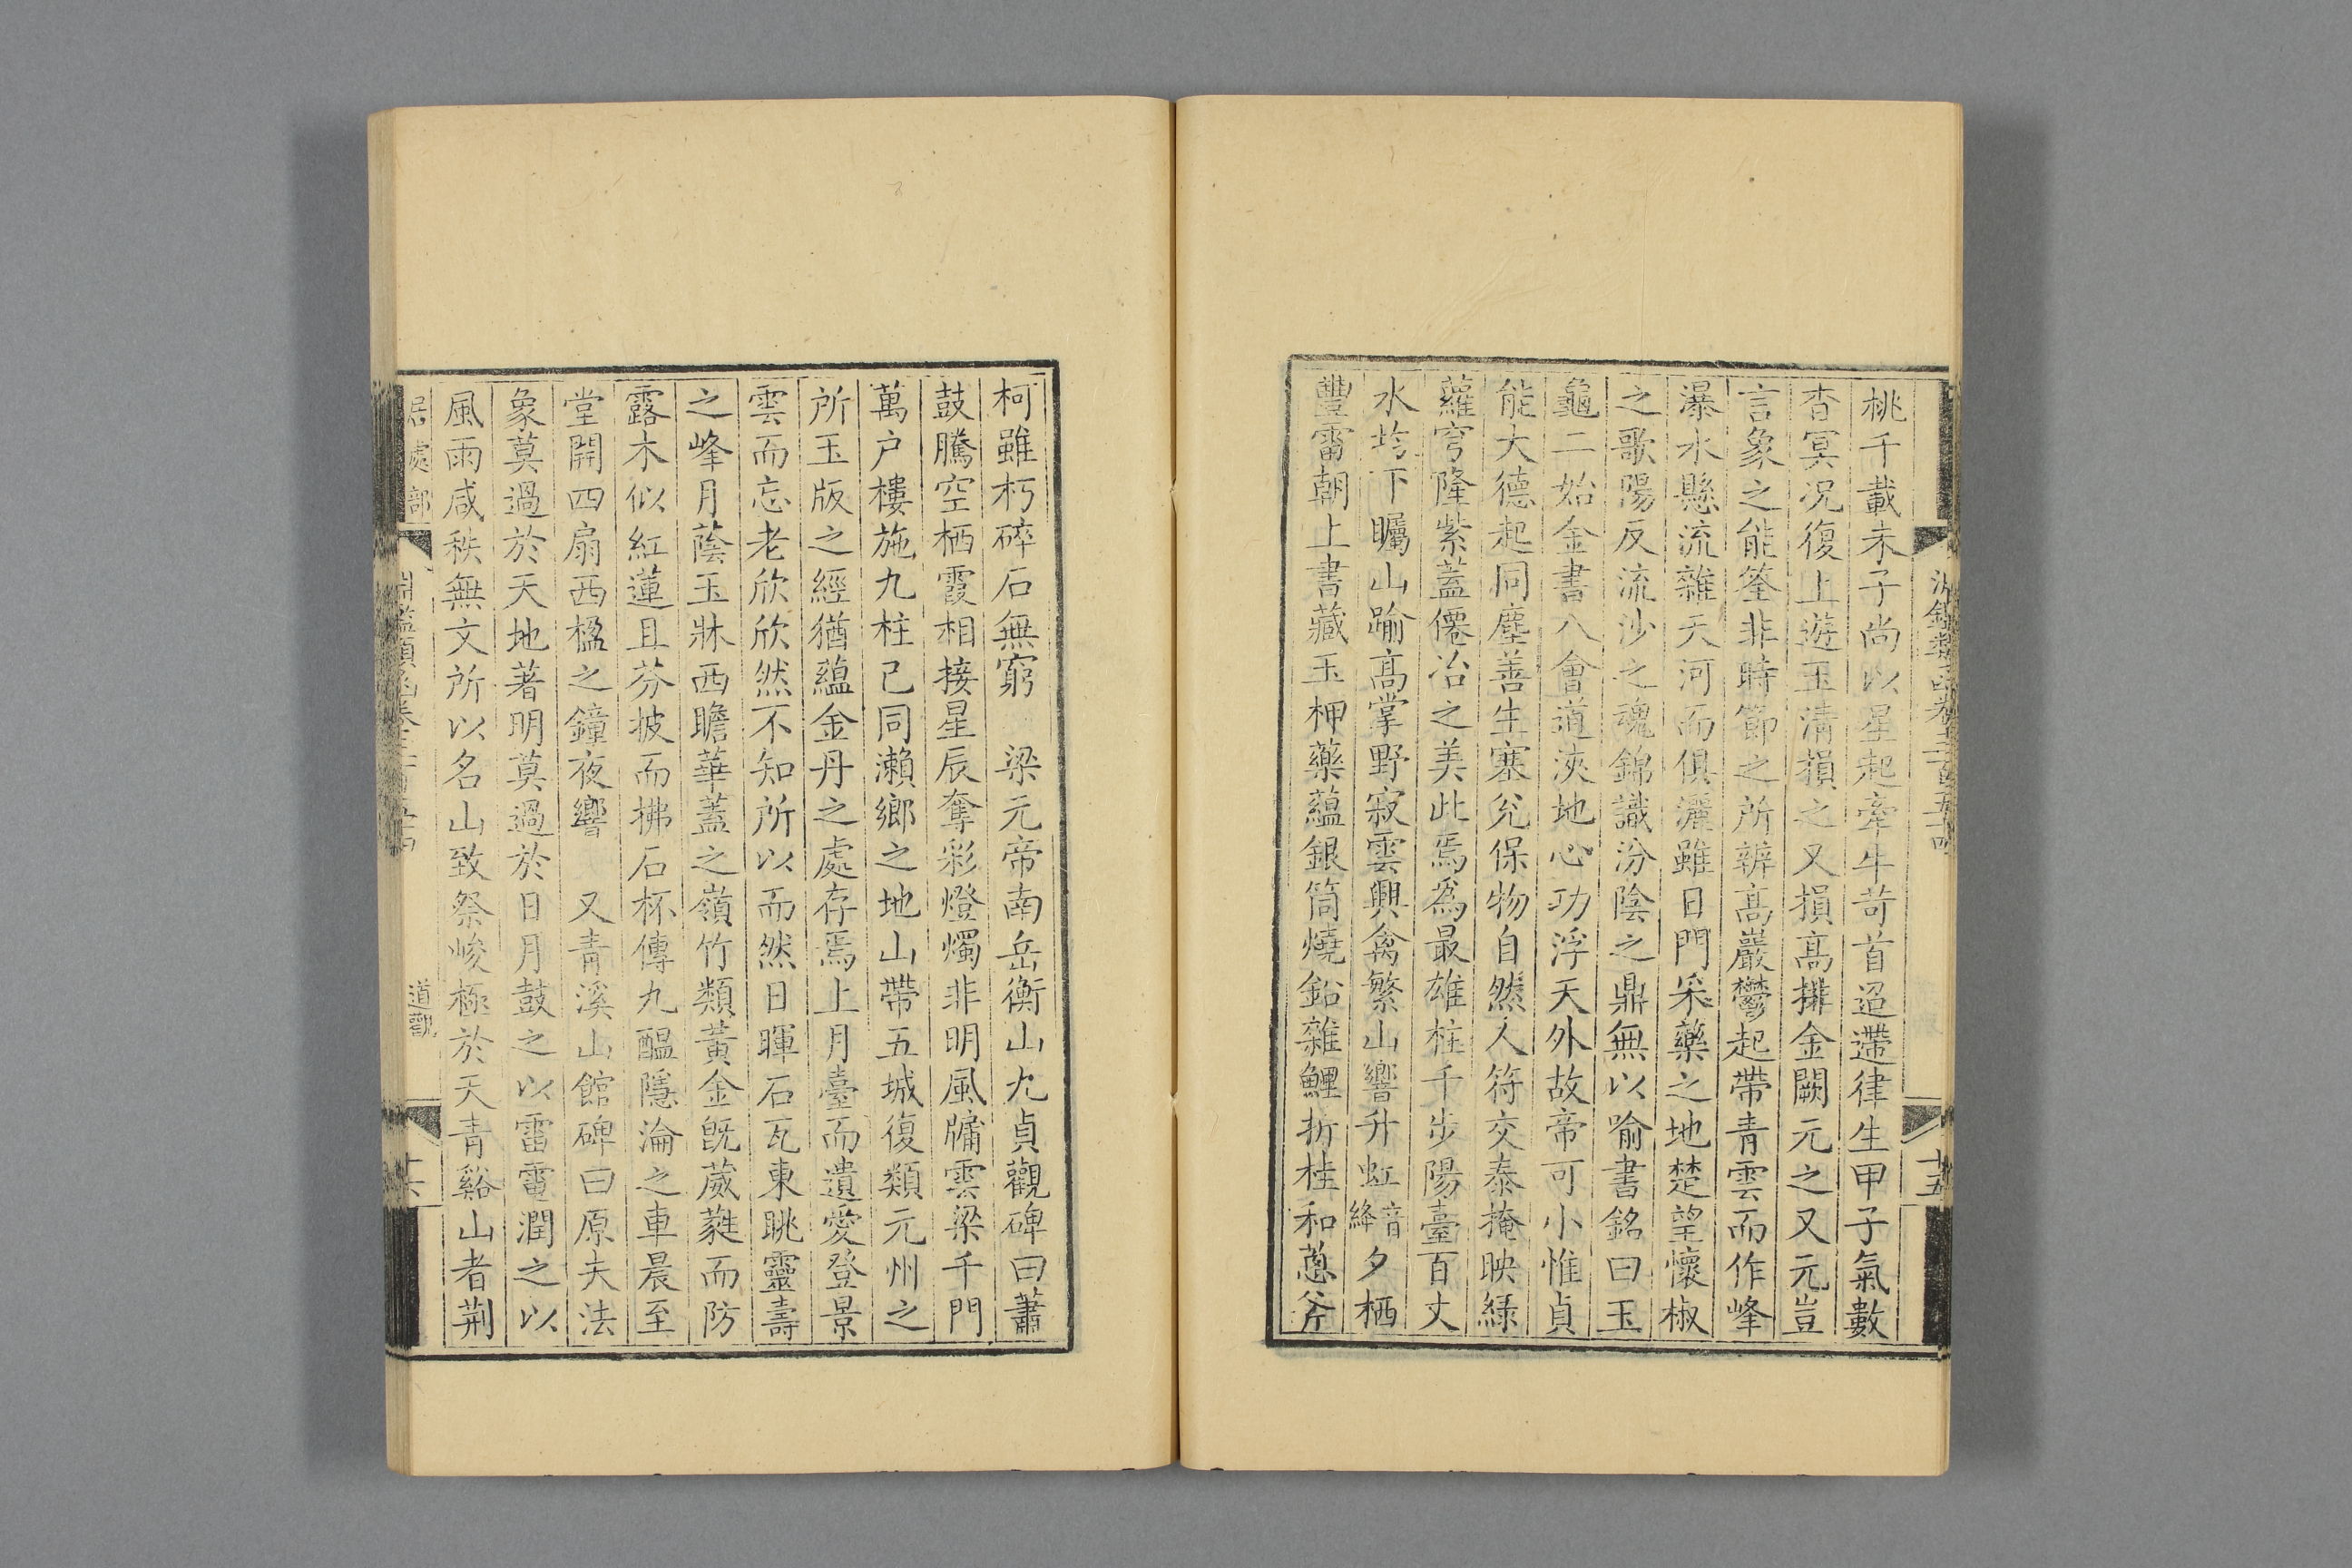 桃千載未子尚以星起牽牛苛首迢遰律生甲子氣數
杳冥况復上遊玉清損之又損高排金闕元之又元豈
言象之能筌非時節之所辨高巖鬱起帶青雲而作峰
瀑水懸流雜天河而俱灑雖日門采藥之地楚望懷椒
之歌陽反流沙之魂錦識汾陰之鼎無以喻書銘曰玉
龜二始金書八會道浹地心功浮天外故帝可小惟貞
能大德起同塵善生塞兊保物自然人符交泰掩映綠
蘿穹隆紫蓋僊冶之美此焉為最雄柱千步陽臺百丈
水抣下矚山踰高掌野寂雲興禽繁山響升虹音絳夕栖
豐霤朝上書藏玉柙藥蘊銀筒燒鉛雜鯉折桂和蔥斧
十五
柯雖朽碎石無窮　梁元帝南岳衡山九貞觀碑曰蕭
鼓騰空栖霞相接星辰奪彩燈燭非明風牗雲梁千門
萬户樓施九柱己同瀨鄉之地山帶五城復類元州之
所玉版之經猶蘊金丹之處存焉上月臺而遺愛登景
雲而忘老欣欣然不知所以而然日暉石瓦東眺靈壽
之峰月蔭玉牀西瞻華蓋之嶺竹類黃金旣葳蕤而防
露木似紅蓮且芬披而拂石杯傳九醖隱淪之車晨至
堂開四扇西楹之鐘夜響　又青溪山館碑曰原夫法
象莫過於天地著明莫過於日月鼓之以雷電潤之以
風雨咸秩無文所以名山致祭峻極於天青谿山者荆
居處部
道觀